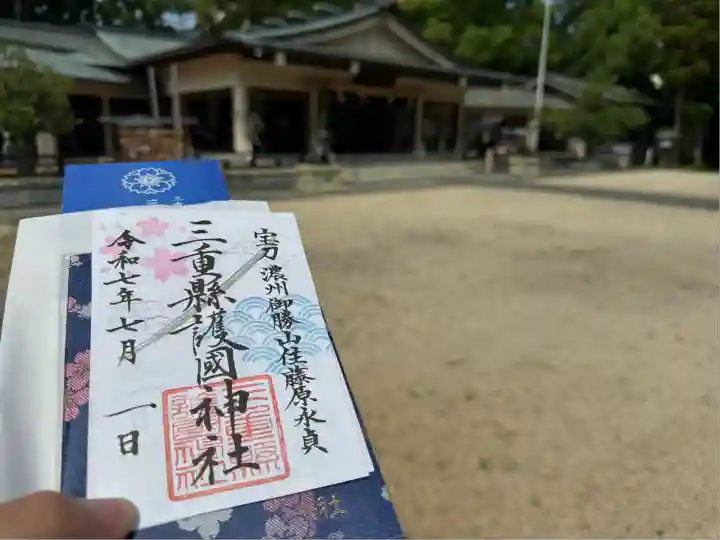 宝刀 濃州御勝山住藤原永貞
三重縣護國神社
令和七年七月一日
社